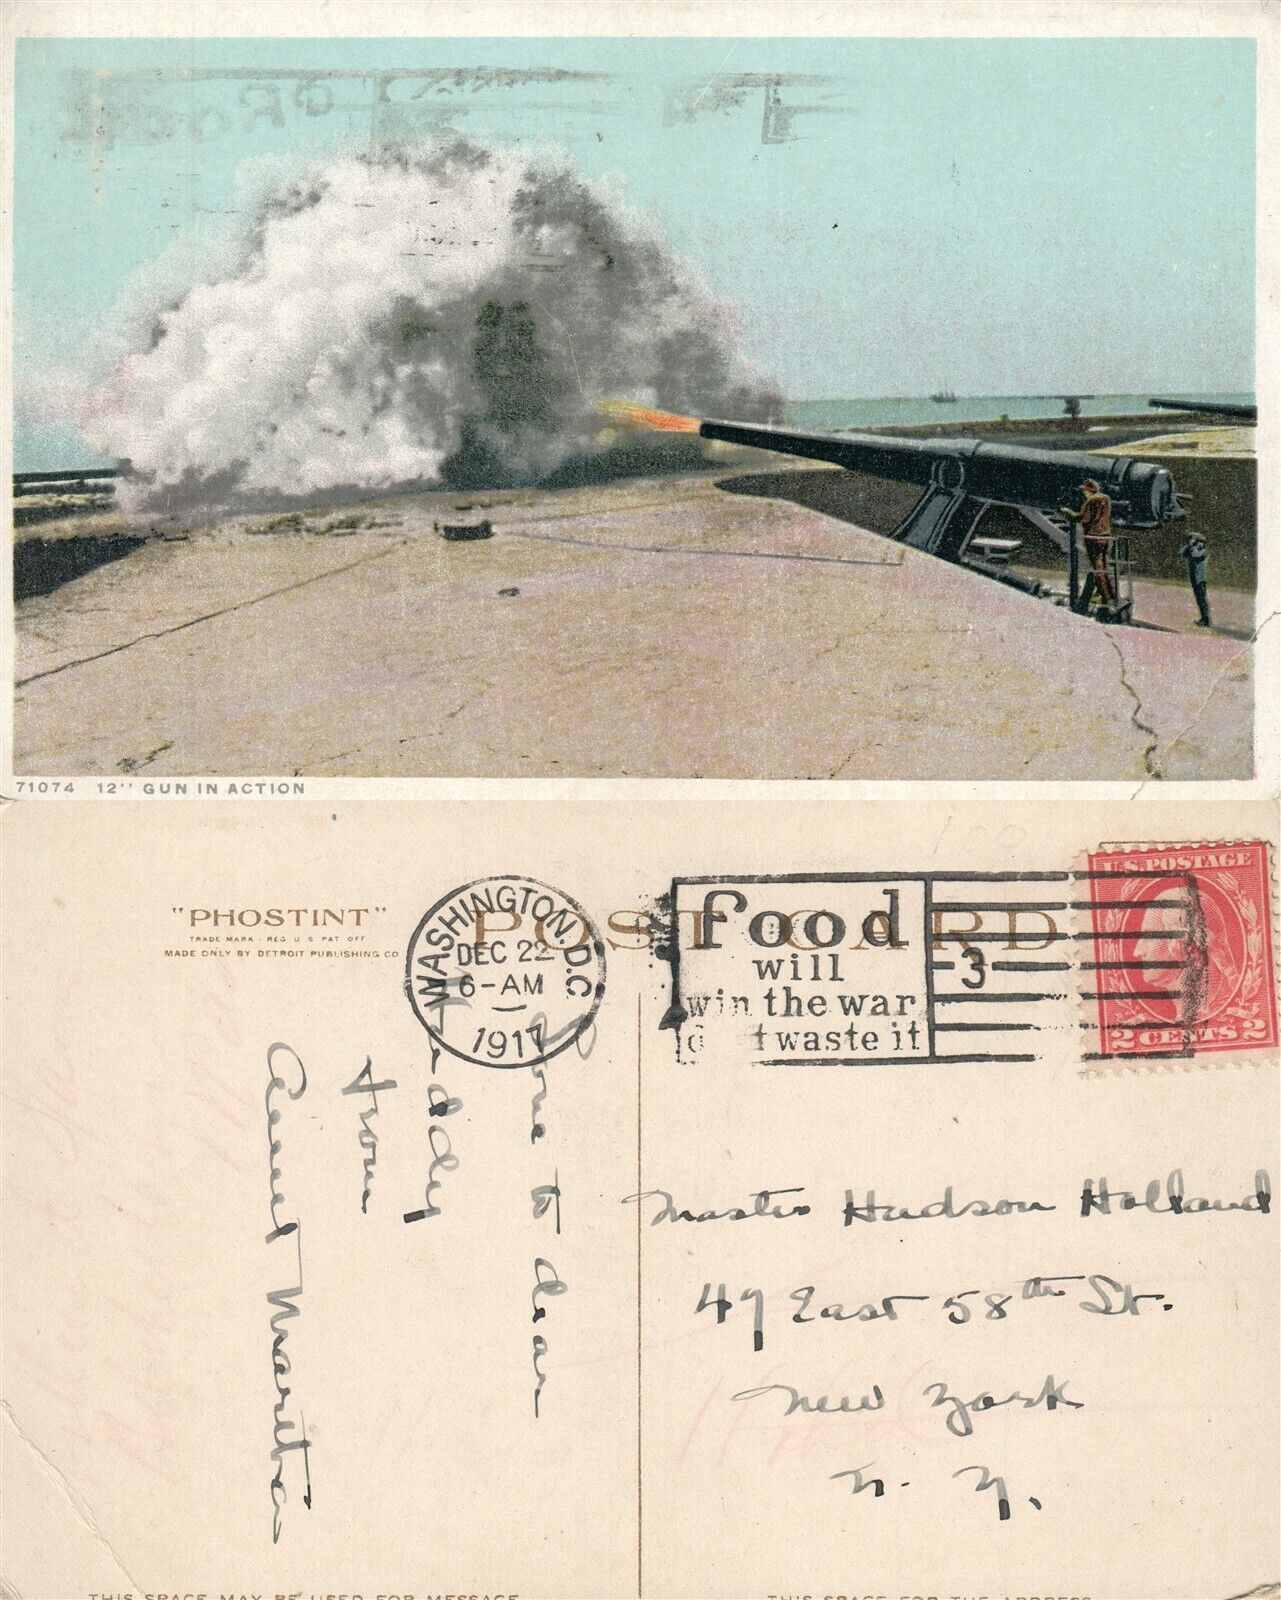 71074 12" GUN IN ACTION
"PHOSTINT"
TRADE MARK · REG U S PAT OFF
MADE ONLY BY DETROIT PUBLISHING CO
POST CARD
WASHINGTON, D.C.
DEC 22
6-AM
1917
food
will
win the war
waste it
3
U.S. POSTAGE
2 CENTS 2
Love to dear
Huddy
from
Aunt Marita
Master Hudson Holland
49 East 58th St.
New York
N. Y.
THIS SPACE MAY BE USED FOR MESSAGE
THIS SPACE FOR THE ADDRESS